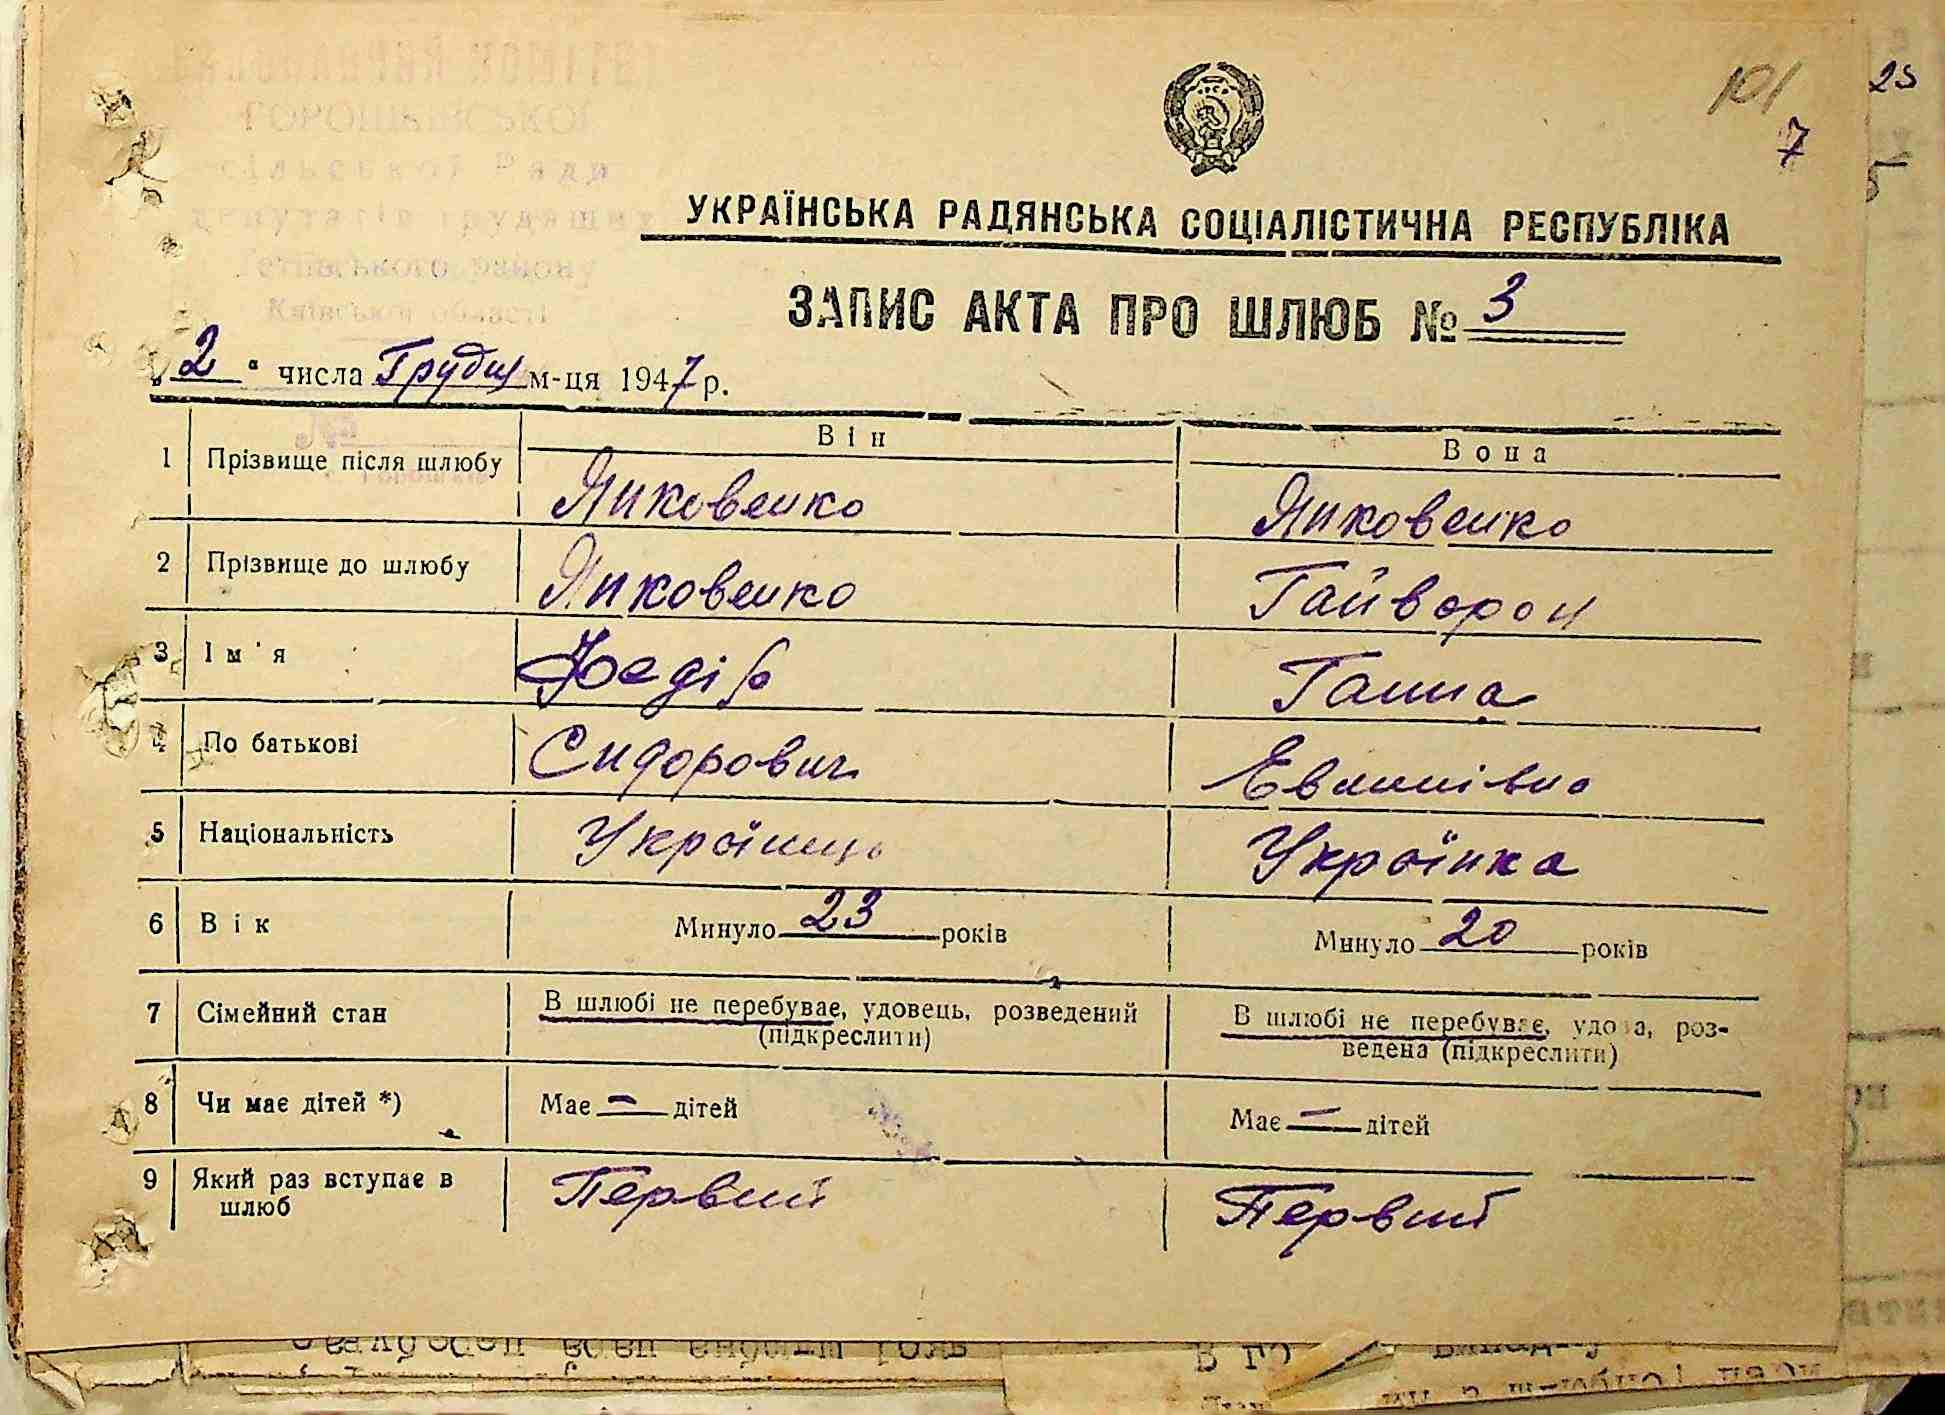 101
7
ГОРОШКІВСЬКОЇ
сільської Ради
депутатів трудящих
Тетіївського району
Київської області
УКРАЇНСЬКА РАДЯНСЬКА СОЦІАЛІСТИЧНА РЕСПУБЛІКА
ЗАПИС АКТА ПРО ШЛЮБ № 3
„ 2 " числа Грудня м-ця 1947 р.
Він Вона
1 Прізвище після шлюбу Янковенко Янковенко
2 Прізвище до шлюбу Янковенко Гайворон
3 Ім'я Федір Ганна
4 По батькові Сидорович
5 Національність Українець Українка
6 Вік Минуло 23 років Минуло 20 років
7 Сімейний стан В шлюбі не перебуває, удовець, розведений В шлюбі не перебуває, удова, роз-
(підкреслити) ведена (підкреслити)
8 Чи має дітей *) Має — дітей Має — дітей
9 Який раз вступає в Первий Первий
шлюб